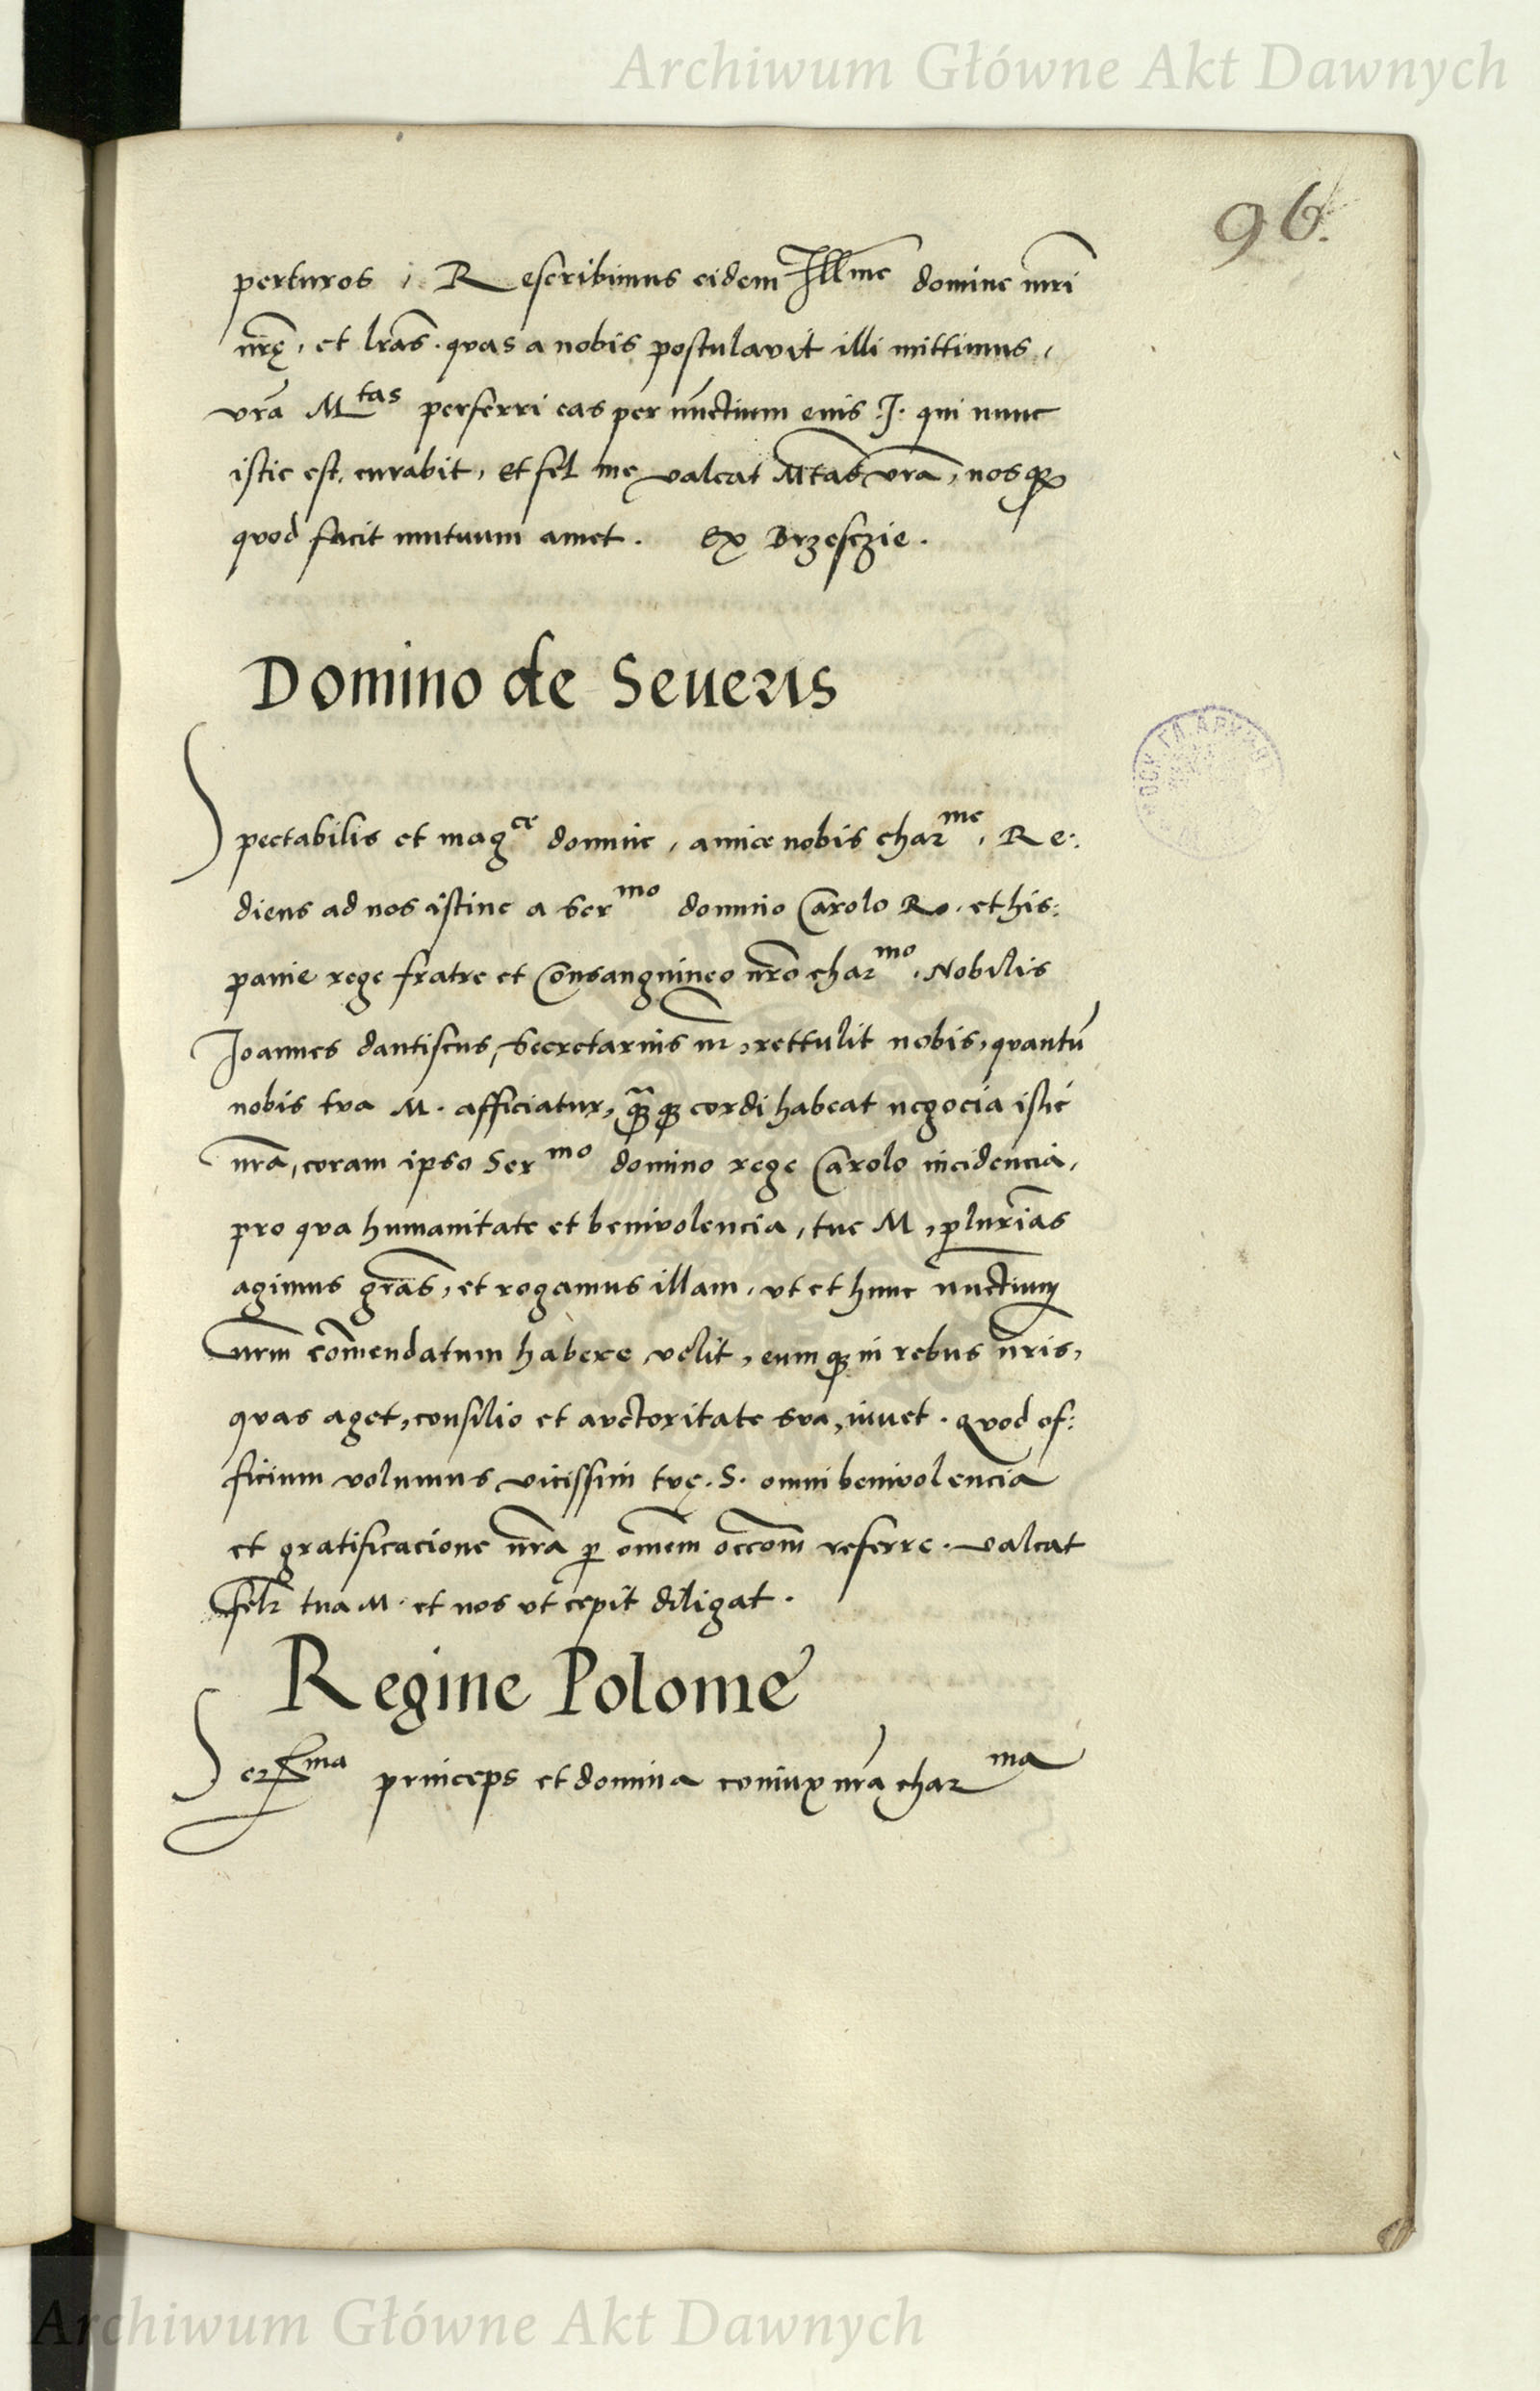 Archiwum Główne Akt Dawnych
96.
perturos . Rescribimus eidem Illme domine mri
nrę, et lras . quas a nobis postulavit illi mittimus,
vra Mtas perferri eas per nuctium eius .J. qui nunc
istic est, curabit, Et fel me valeat Mtas vra, nosqȝ
quod facit mutuum amet . Ex Brzesczie .
Domino de Seueris
Spectabilis et magce domine, amice nobis charme, Re:
diens ad nos istinc a Sermo domino Carolo Ro. et his:
panie rege fratre et Consanguineo nro charmo, Nobilis
Joannes dantiscus, Secretarius nr, rettulit nobis, quantū
nobis tva M. afficiatur, qȝ̃qȝ cordi habeat negocia istic
nra, coram ipso Sermo domino rege Carolo incidencia,
pro qva humanitate et benivolencia, tue M, plurias
agimus gras, et rogamus illam, vt et hunc nuctium
nrm cōmendatum habere velit, eumqȝ in rebus nris,
qvas aget, consilio et avctoritate sva, iuvet . qvod of:
ficium volumus vicissim tvę . S . omni benivolencia
et gratificacione nra p omem occom referre . valeat
felr tua M . et nos vt cepit diligat .
Regine Polonie
Serma princeps et domina coniunx nra charma
Archiwum Główne Akt Dawnych